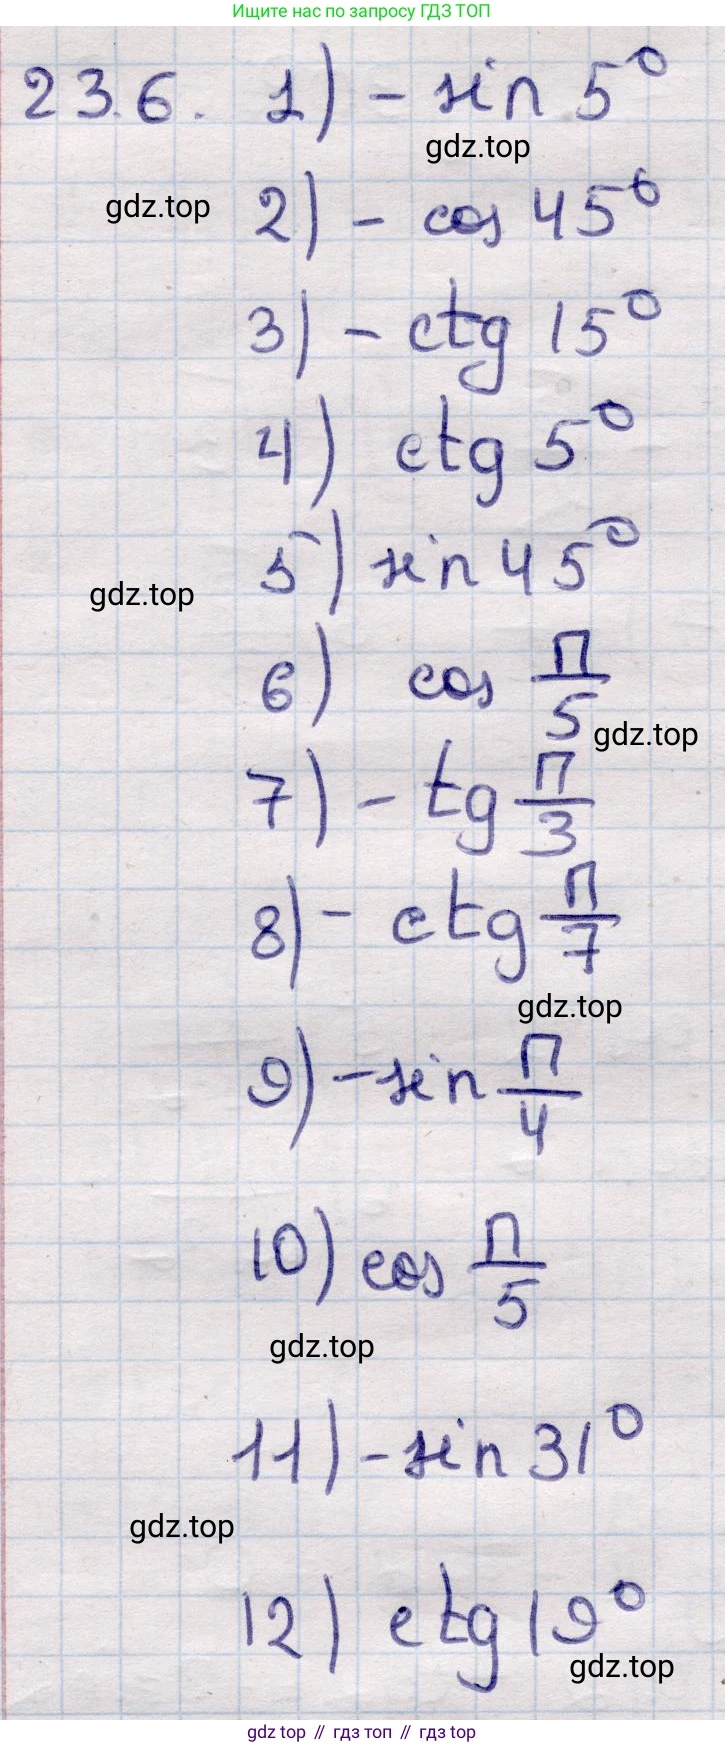 Ищите нас по запросу ГДЗ ТОП
23.6. 1) - sin 5°
gdz.top
gdz.top
2) - cos 45°
3) - ctg 15°
4) ctg 5°
5) sin 45°
gdz.top
6) cos П/5
gdz.top
7) - tg П/3
8) - ctg П/7
gdz.top
9) - sin П/4
10) cos П/5
gdz.top
11) - sin 31°
gdz.top
12) ctg 19°
gdz.top
gdz top // гдз топ // гдз top